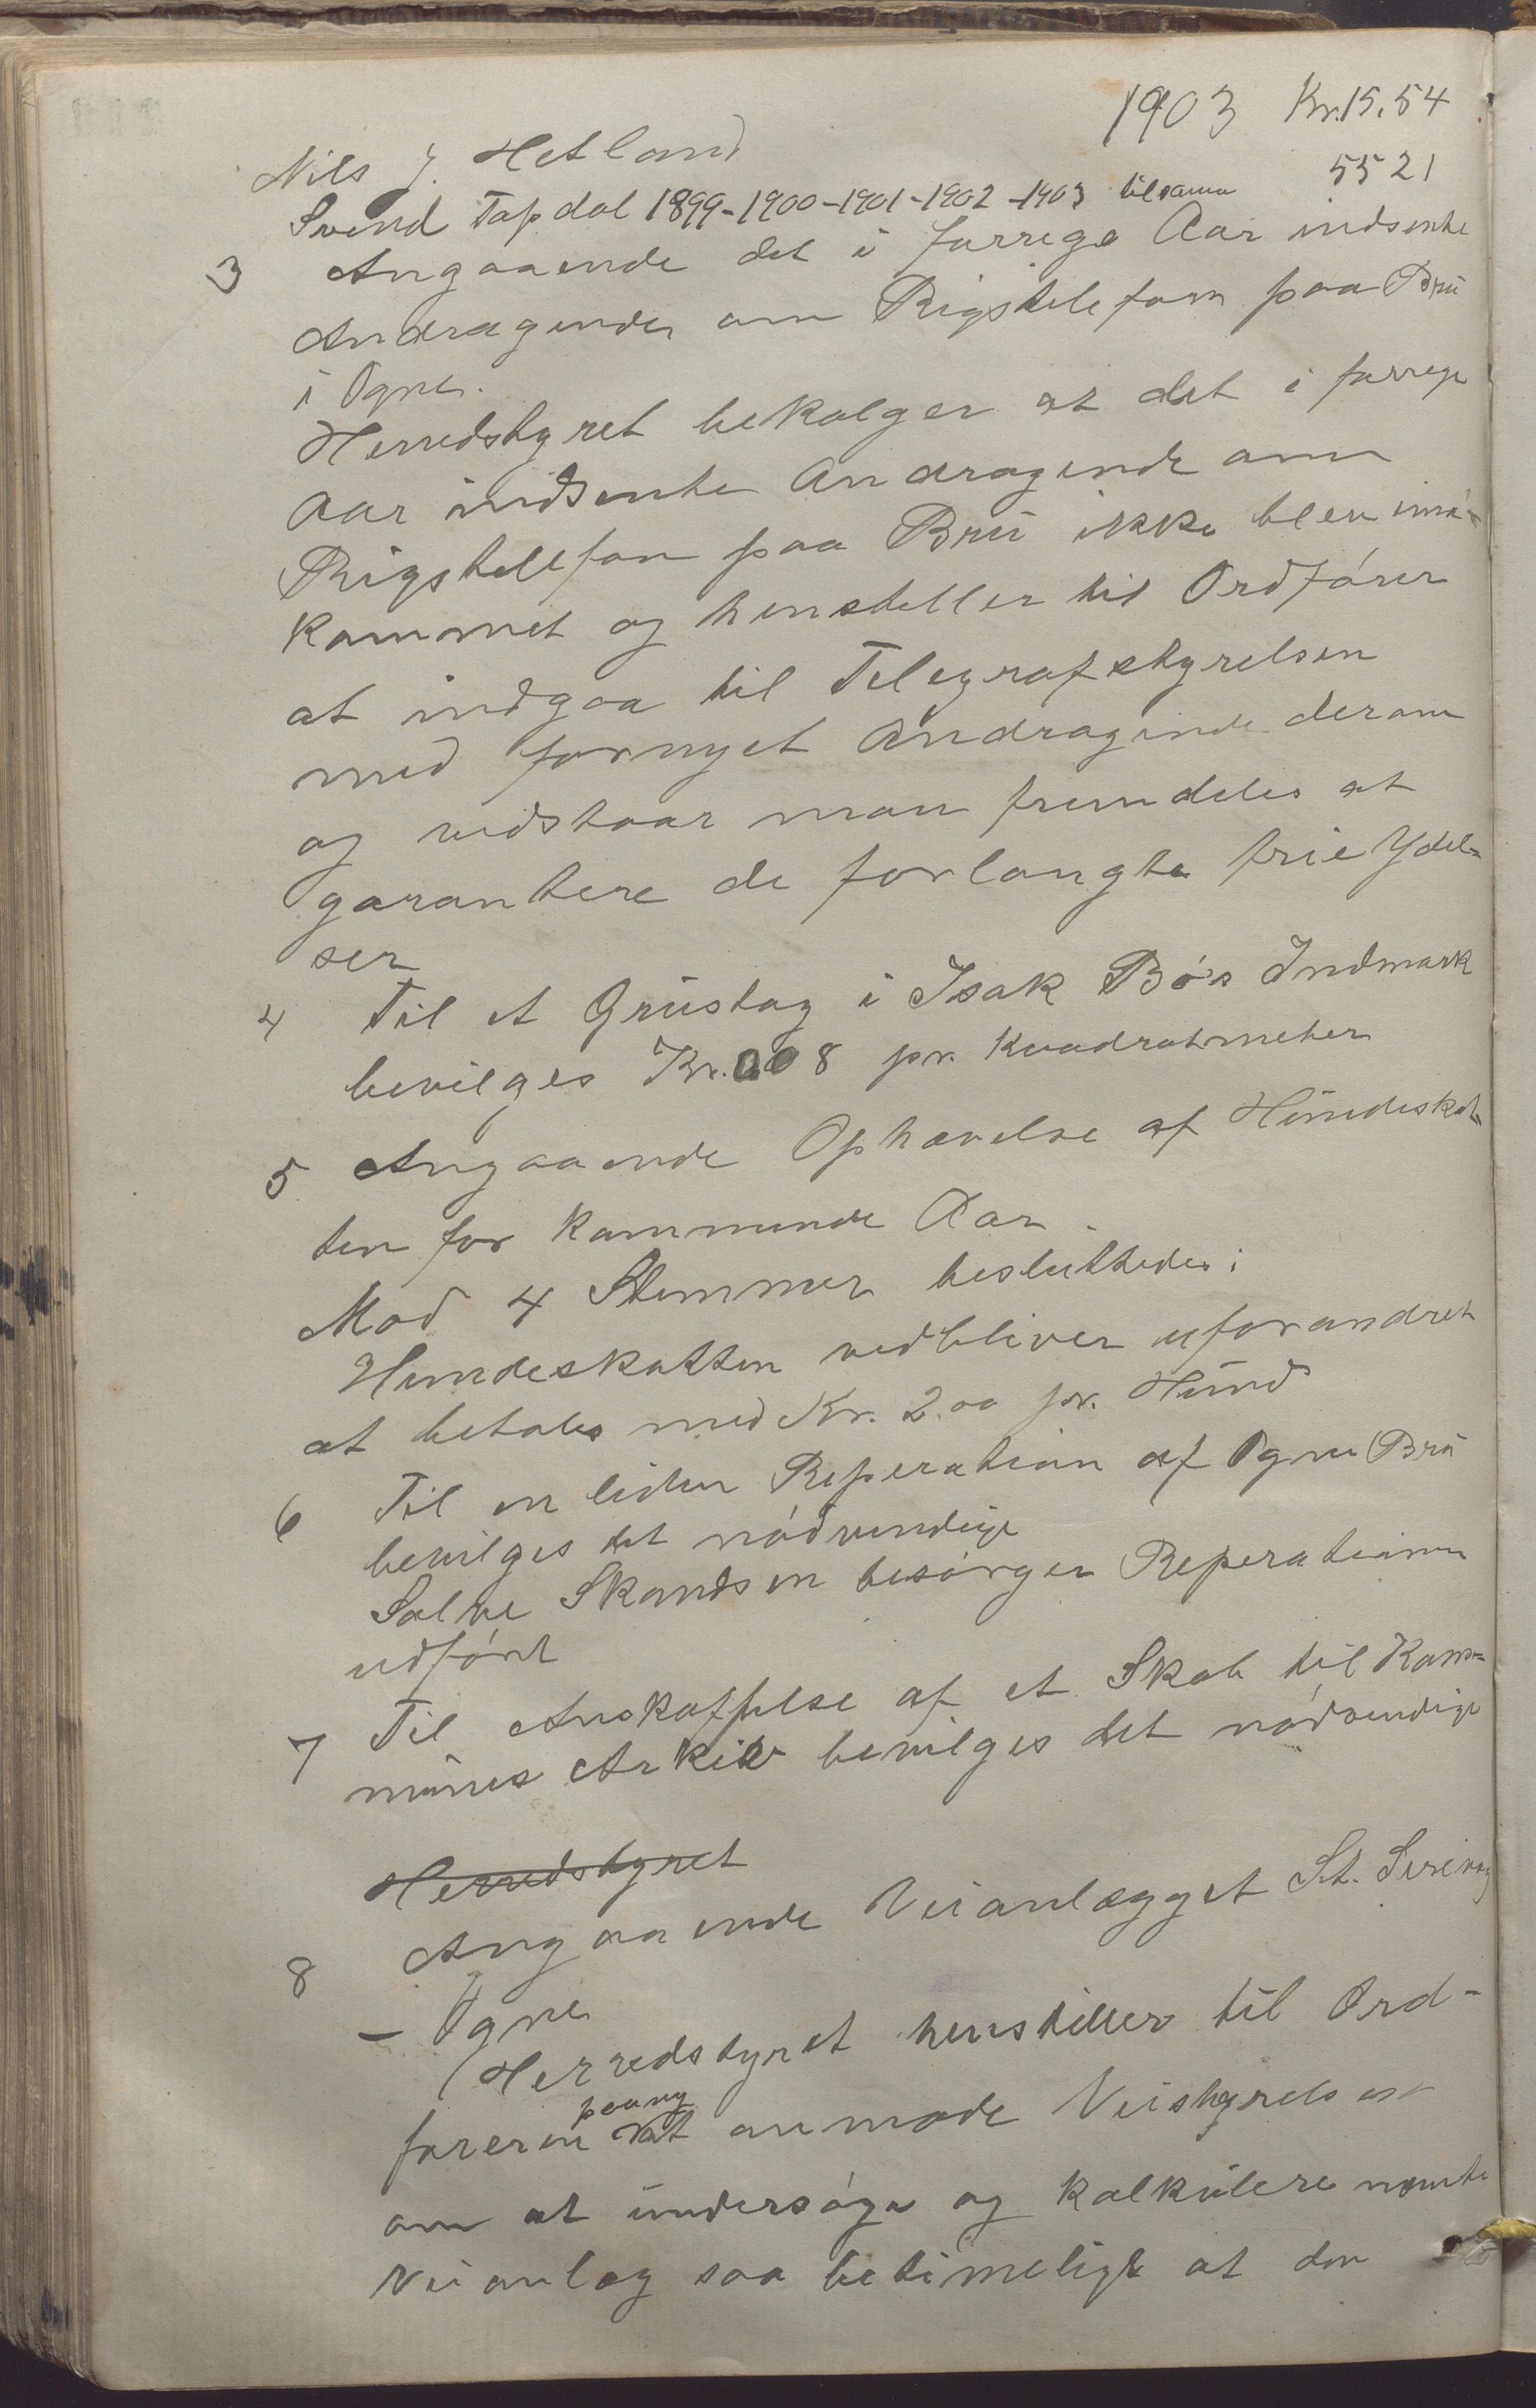 Nils J. Hetland 1903 Kr. 15.54
Svend Tapdal 1899-1900-1901-1902-1903 tilsamn 55 21
3 Angaaende det i forrege Aar indsente
Andragende om Rigstelefon paa Brü
i Ogne.
Herredstyret beKalger at det i forrege
Aar indsente Andragende om
Rigstelefon paa Brü ikke blev imö=
kommet og henstiller til Ordfórer
at indgaa til Telegrafstyrelsen
med fornyet Andragende derom
og vedstaar man fremdeles at
garantere de forlangte frie Ydel=
ser
4 Til et Grüstag i Isak Bö's Indmark
bevilges Kr. 0.08 pr. Kvadratmeter
5 Angaaende Ophævelse af Hündeskat=
ten for kommende Aar.
Mod 4 Stemmer besluttedes:
Hundeskatten vedbliver uforandret
at betales med Kr. 2.00 pr. Hünd
6 Til en liden Reperation af Ogne Brü
bevilges det nödvendige
Salve Skandsen besörger Reperationen
udfört
7 Til Anskaffelse af et Skab til Kom=
münes Arkiv bevilges det nödvendige
Herredstyret
8 Angaaende Veianlægget St. Sirevaag
- Ogne
Herredstyret henstiller til Ord-
paany
föreren at anmode Veistyrelsen
om at ündersöge og kalkülere nævnte
Veianlæg saa betimeligt at den